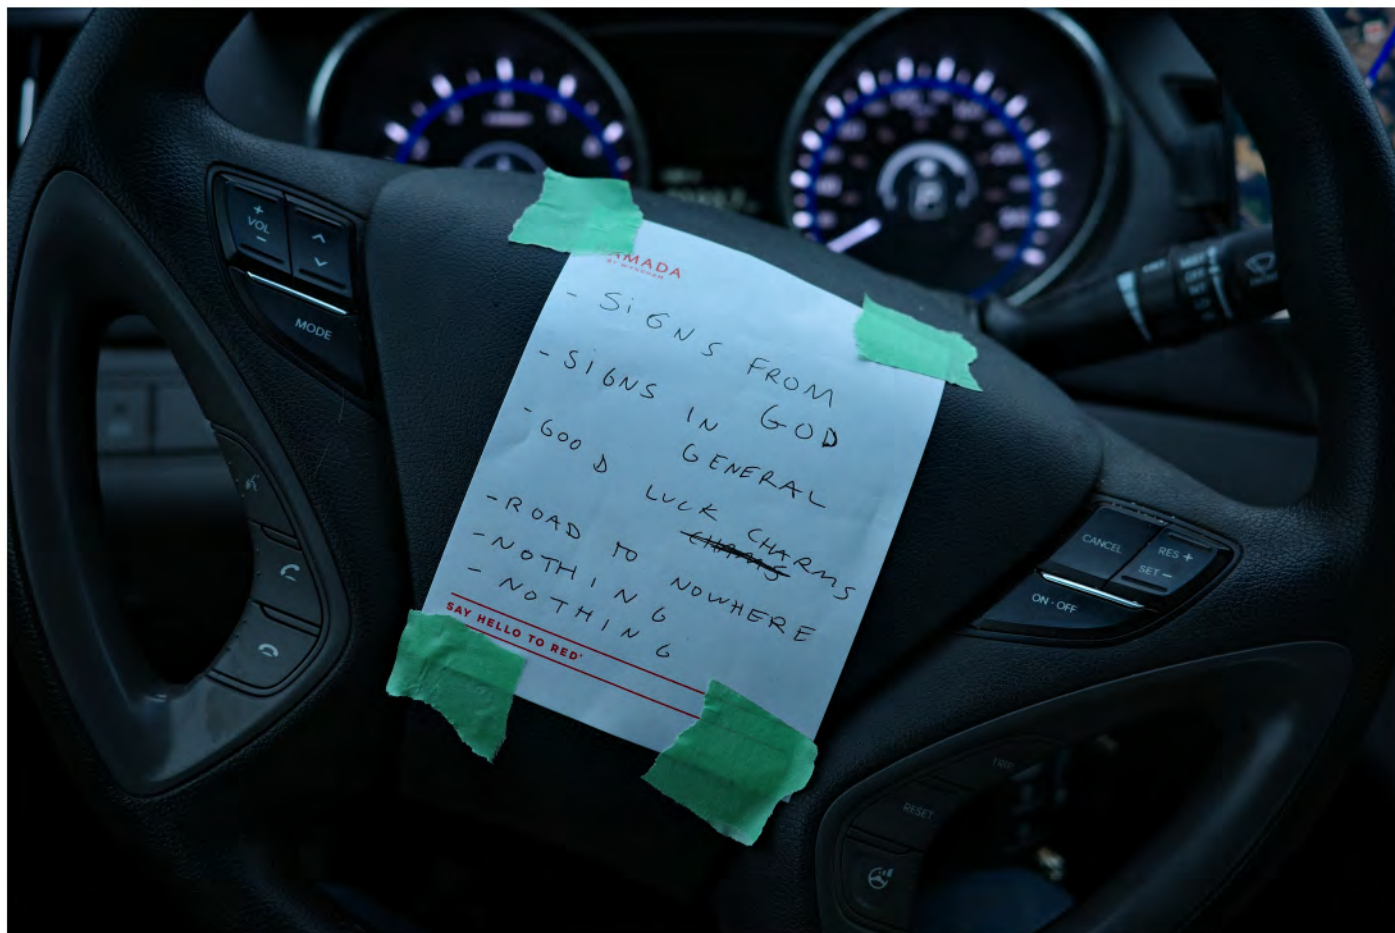 VOL
MODE
AMADA
BY WYNDHAM
- SIGNS FROM
GOD
- SIGNS IN
GENERAL
- GOOD LUCK CHARMS
- ROAD TO NOWHERE
- NOTHING
- NOTHING
SAY HELLO TO RED
CANCEL
RES +
SET -
ON · OFF
TRIP
RESET
P